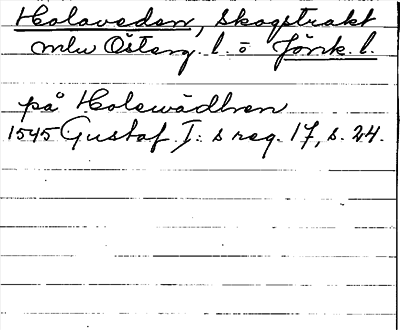 Holaveden, skogstrakt
mlw Österg. l. o Jönk. l.
på Holewådhren
1545 Gustaf I: s reg. 17, s. 24.